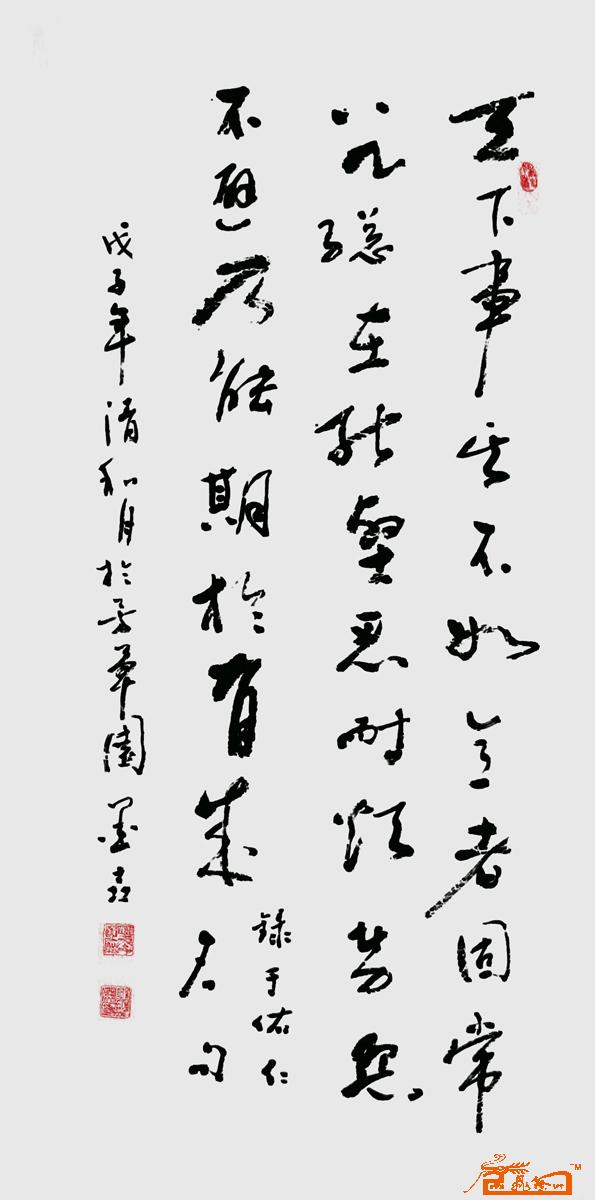 天下事其不如意者固常
八九總在能堅忍耐煩勞怨
不避乃能期於有成
錄于佑仁
名句
戊子年清和月於芳草園墨